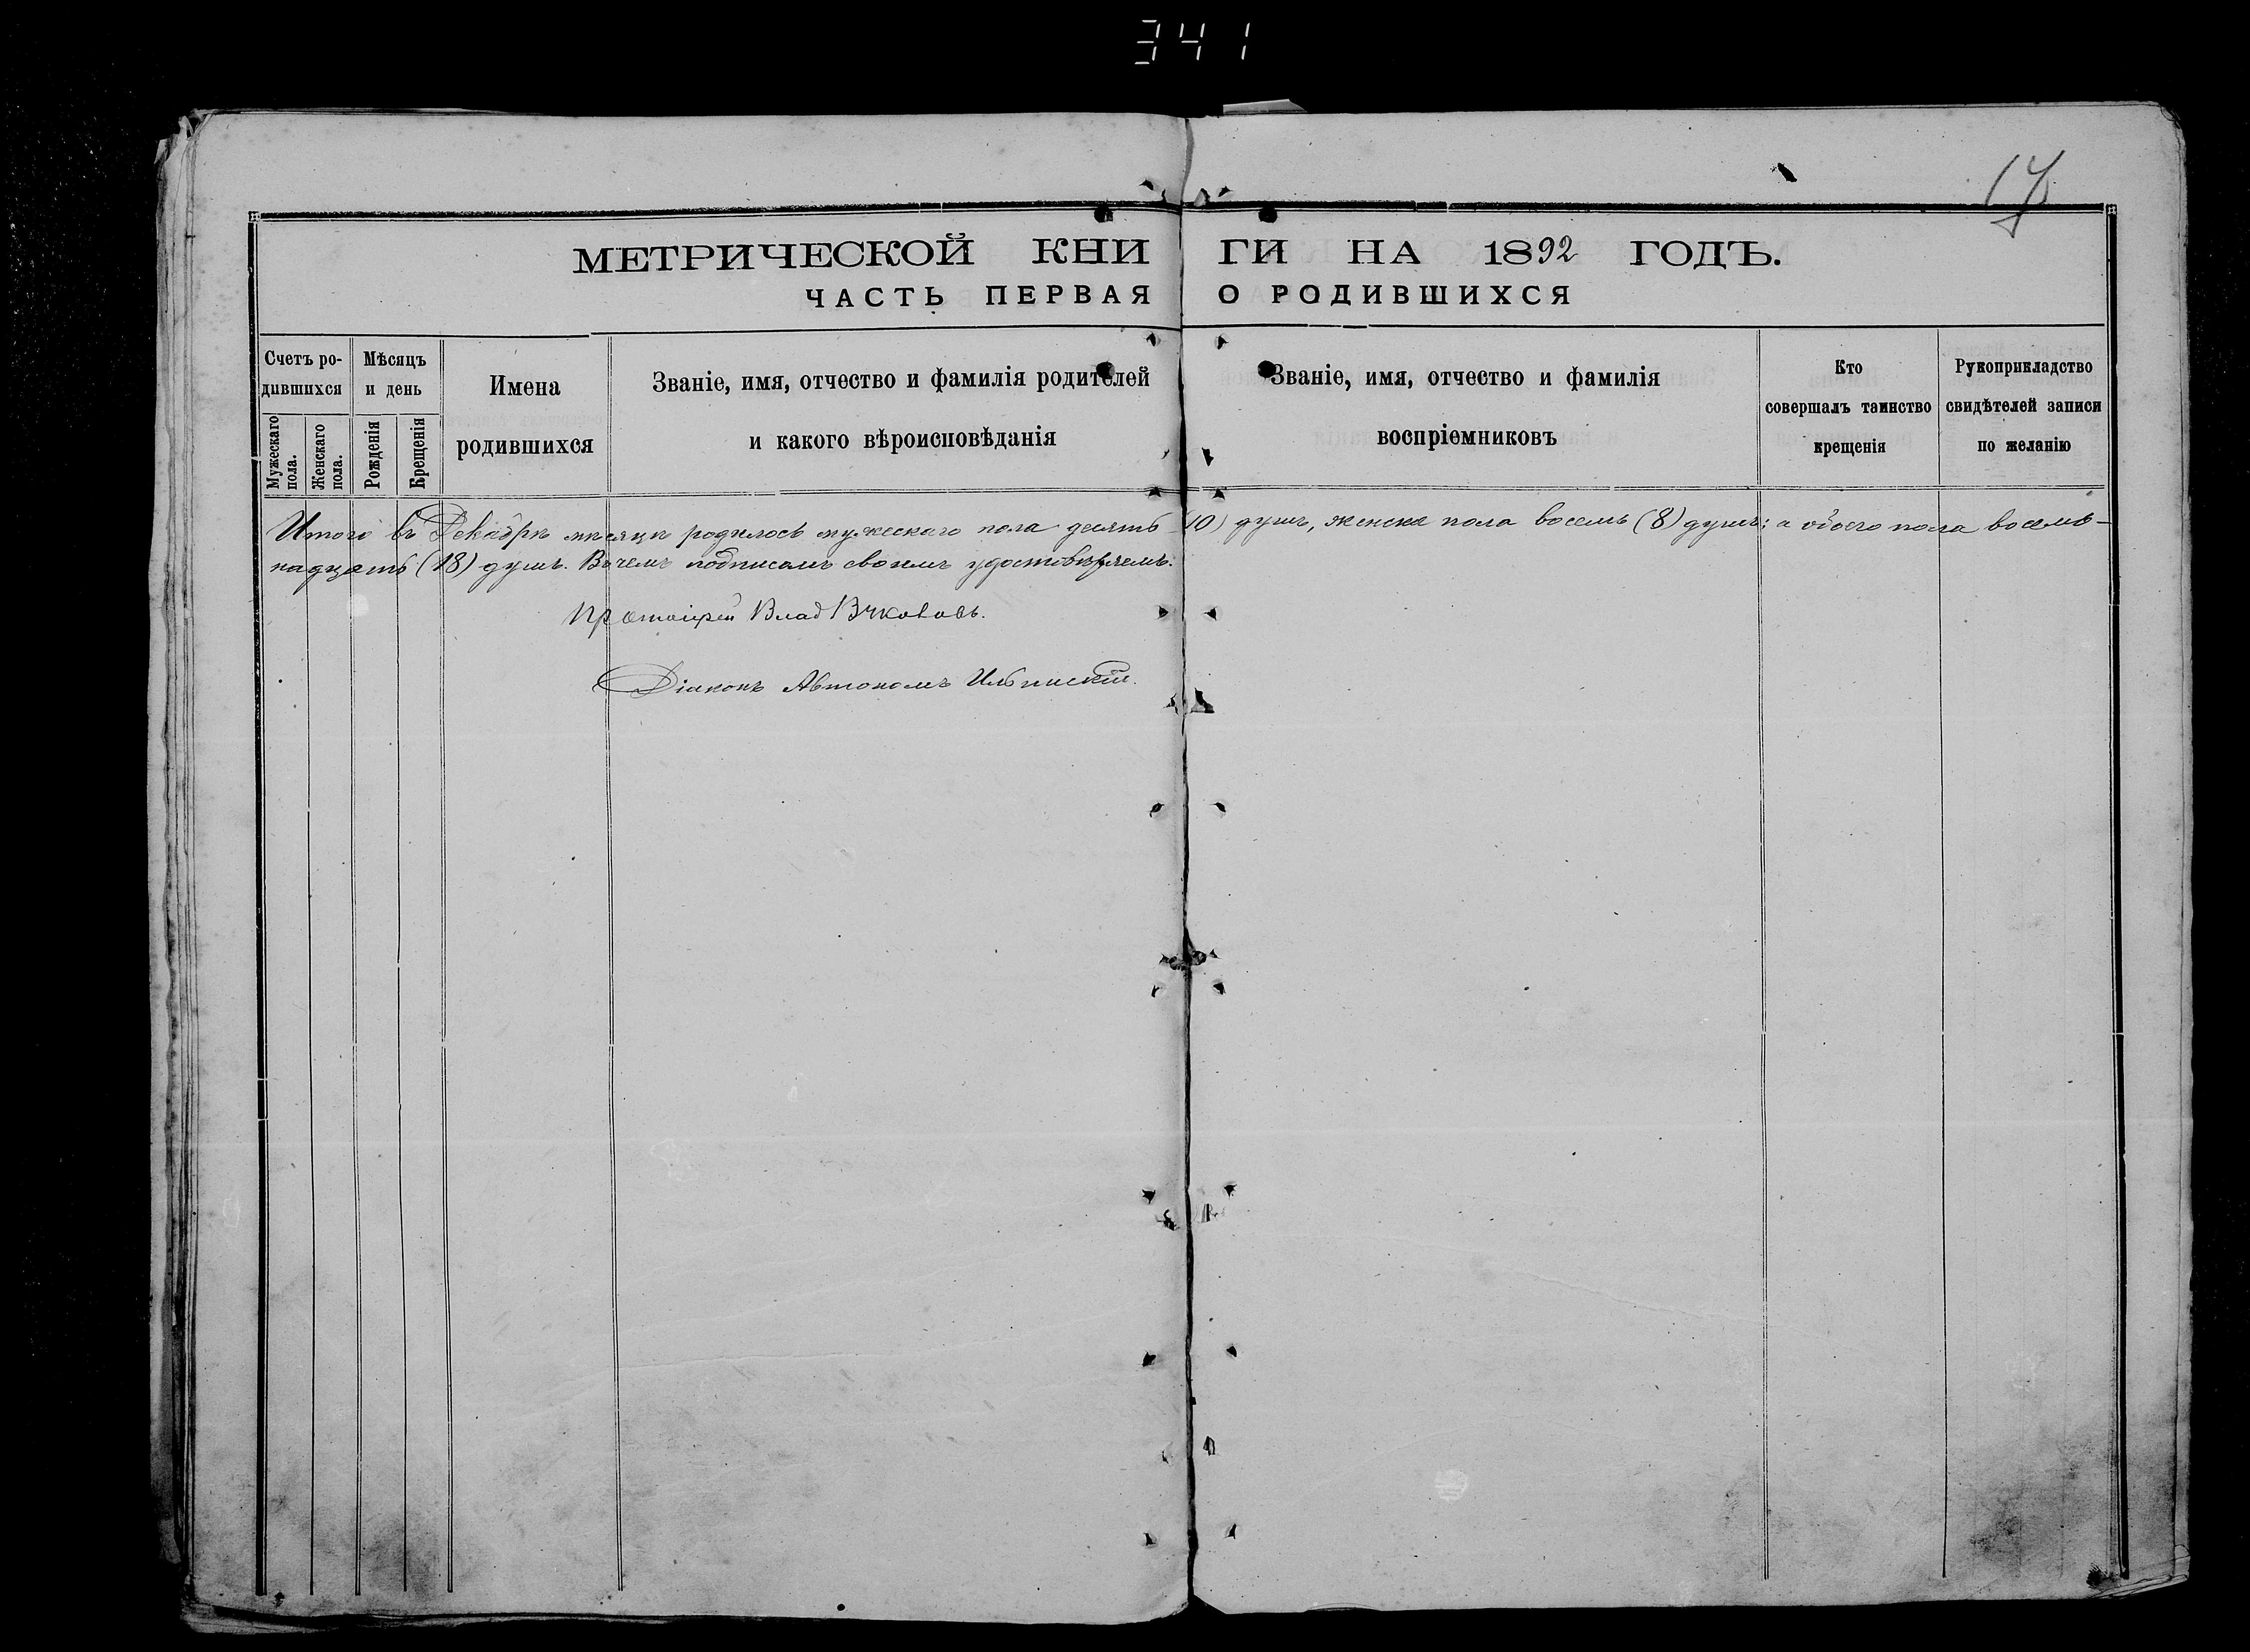 341
17
МЕТРИЧЕСКОЙ КНИГИ НА 1892 ГОДЪ.
ЧАСТЬ ПЕРВАЯ О РОДИВШИХСЯ
Счетъ ро-
дившихся
Мужескаго
пола.
Женскаго
пола.
Мѣсяцъ
и день
Рожденія
Крещенія
Имена
родившихся
Званіе, имя, отчество и фамилія родителей
и какого вѣроисповѣданія
Званіе, имя, отчество и фамилія
воспріемниковъ
Кто
совершалъ таинство
крещенія
Рукоприкладство
свидѣтелей записи
по желанію
Итого въ Декабрѣ мѣсяцѣ родилось мужескаго пола десять (10) душъ, женска пола восемь (8) душъ; а обоего пола восемь-
надцать (18) душъ. Въ чемъ подписомъ своимъ удостовѣряемъ:
Протоіерей Влад
Діаконъ Автономъ Ильинскій.